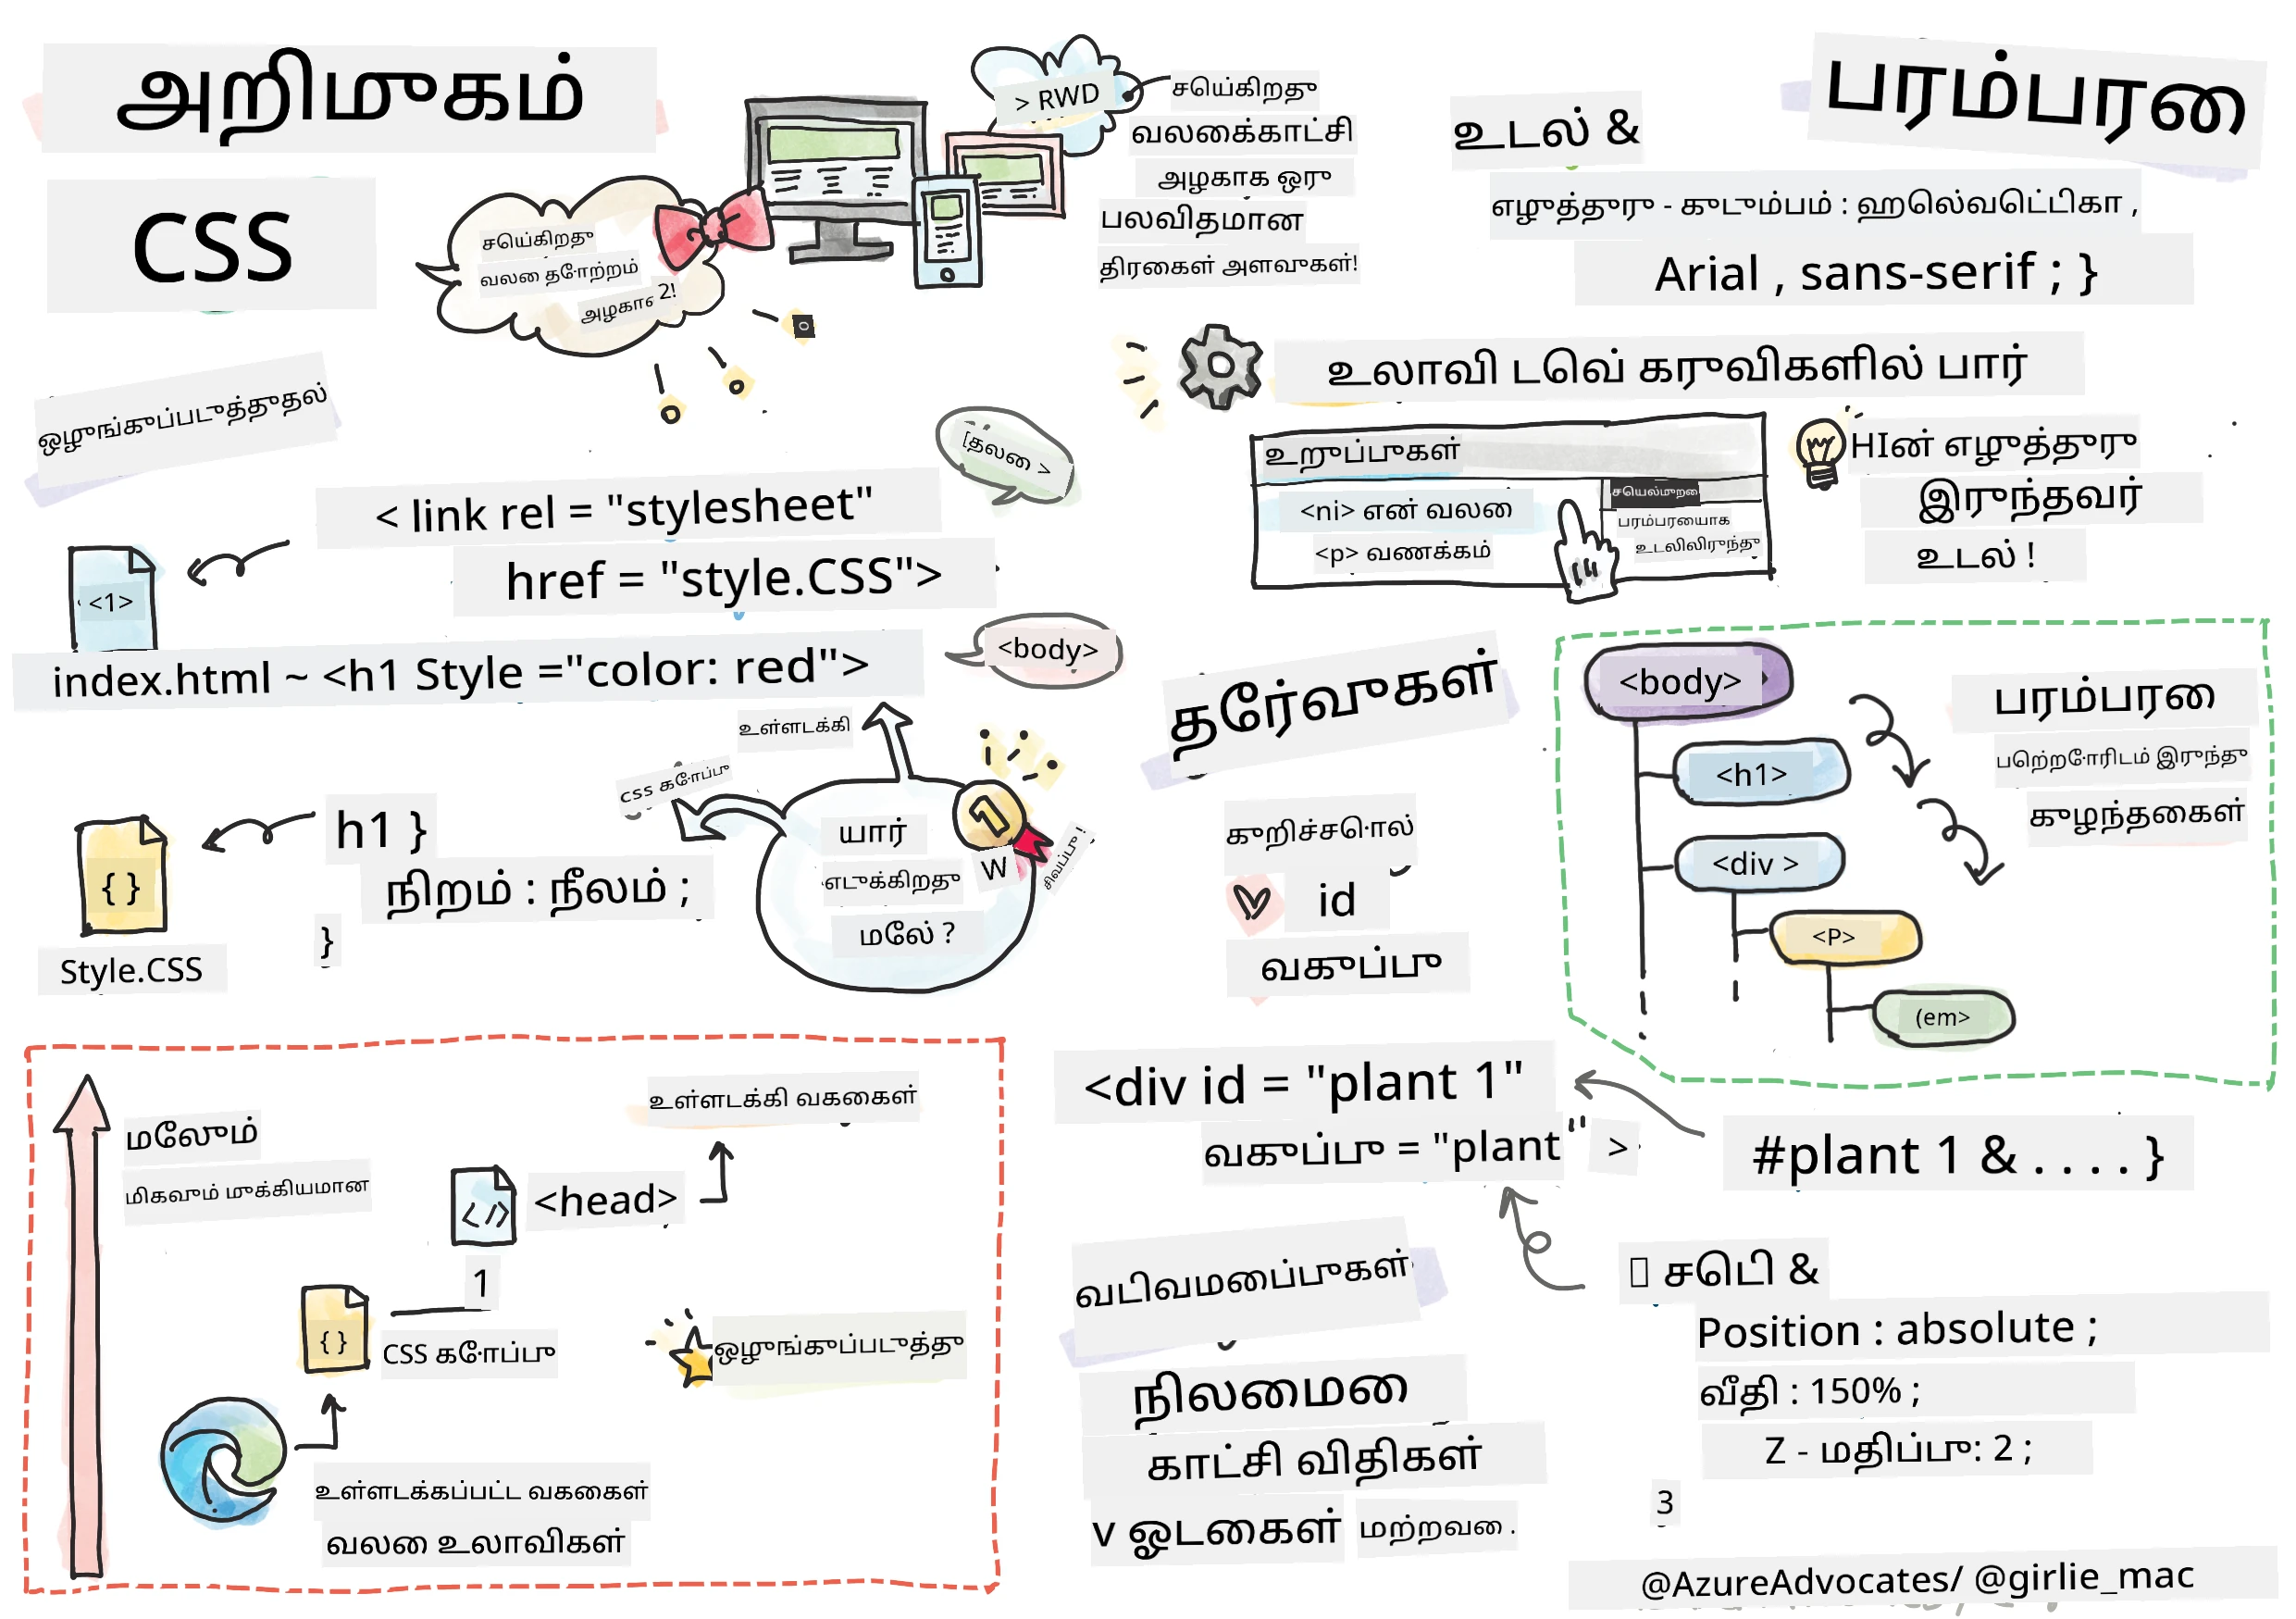 அறிமுகம்
CSS
செய்கிறது
வலை தோற்றம்
அழகான 2!
> RWD
செய்கிறது
வலைக்காட்சி
அழகாக ஒரு
பலவிதமான
திரைகள் அளவுகள்!
ஒழுங்குப்படுத்துதல்
[தலை >
< link rel = "stylesheet"
href = "style.CSS">
<1>
index.html ~ <h1 Style ="color: red">
<body>
உள்ளடக்கி
css கோப்பு
h1 }
நிறம் : நீலம் ;
}
{ }
Style.CSS
யார்
எடுக்கிறது
மேல் ?
1
W
சிவப்பு !
மேலும்
மிகவும் முக்கியமான
உள்ளடக்கி வகைகள்
</>
<head>
1
{ }
CSS கோப்பு
ஒழுங்குப்படுத்து
உள்ளடக்கப்பட்ட வகைகள்
வலை உலாவிகள்
பரம்பரை
உடல் &
எழுத்துரு - குடும்பம் : ஹெல்வெட்டிகா ,
Arial , sans-serif ; }
உலாவி டெவ் கருவிகளில் பார்
உறுப்புகள்
<ni> என் வலை
<p> வணக்கம்
செயல்முறை
பரம்பரையாக
உடலிலிருந்து
HIன் எழுத்துரு
இருந்தவர்
உடல் !
தேர்வுகள்
குறிச்சொல்
id
வகுப்பு
<body>
<h1>
<div >
<P>
(em>
பரம்பரை
பெற்றோரிடம் இருந்து
குழந்தைகள்
<div id = "plant 1"
வகுப்பு = "plant" >
#plant 1 & . . . . }
வடிவமைப்புகள்
நிலைமை
காட்சி விதிகள்
v ஓடைகள் மற்றவை .
செடி &
Position : absolute ;
வீதி : 150% ;
Z - மதிப்பு: 2 ;
3
@AzureAdvocates/ @girlie_mac